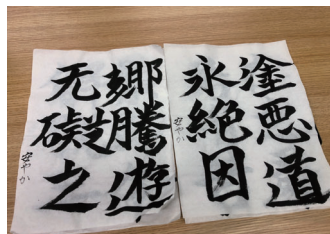 塗悪道
永絶因
安やか
郷騰遊
无礙之
安やか